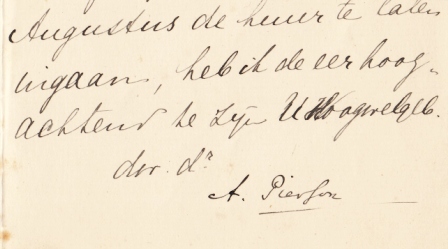 Augustus de huur te laten
ingaan, heb ik de eer hoog-
achtend te zijn UHoogwelgeb.
dw. dr
A. Pierson